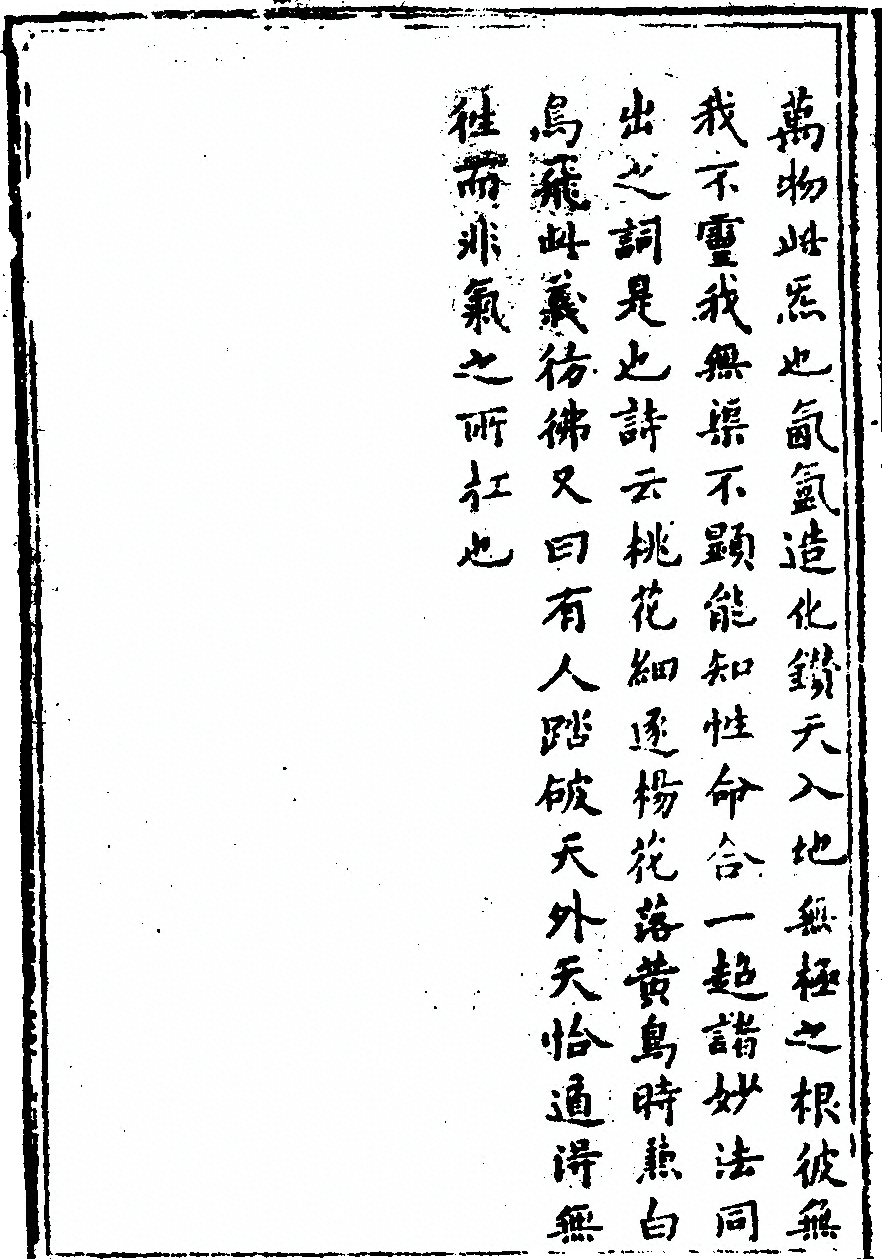 萬物此炁也氤氳造化鑽天入地無極之根彼無
我不靈我無渠不顯能知性命合一超諸妙法同
出之詞是也詩云桃花細逐楊花落黃鳥時兼白
鳥飛此義彷彿又曰有人踏破天外天恰通得無
往而非氣之所在也